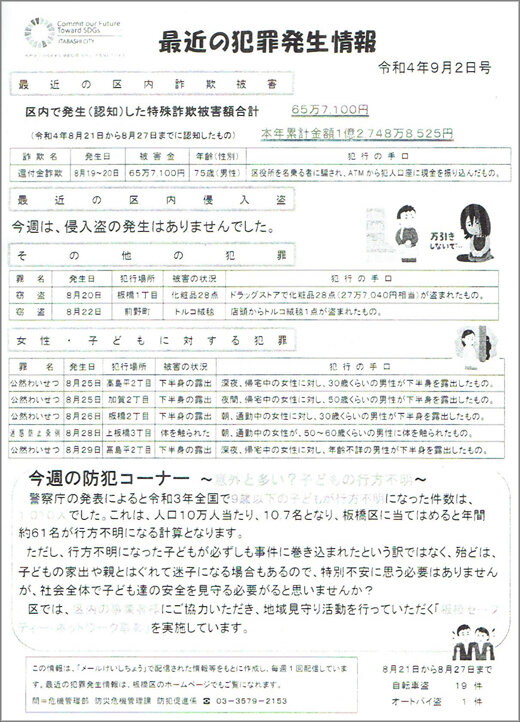 Commit our Future
Toward SDGs
ITABASHI CITY
最近の犯罪発生情報
令和4年9月2日号
最近の区内詐欺被害
区内で発生(認知)した特殊詐欺被害額合計 65万7,100円
(令和4年8月21日から8月27日までに認知したもの) 本年累計金額1億2,748万8,525円
詐欺名 発生日 被害金 年齢(性別) 犯行の手口
還付金詐欺 8月19～20日 65万7,100円 75歳(男性) 区役所を名乗る者に騙され、ATMから犯人口座に現金を振り込んだもの。
最近の区内侵入盗
今週は、侵入盗の発生はありませんでした。
万引き
しないで
その他の犯罪
罪名 発生日 犯行場所 被害の状況 犯行の手口
窃盗 8月20日 板橋1丁目 化粧品28点 ドラッグストアで化粧品28点(27万7,040円相当)が盗まれたもの。
窃盗 8月22日 前野町 トルコ絨毯 店頭からトルコ絨毯1点が盗まれたもの。
女性・子どもに対する犯罪
罪名 発生日 犯行場所 被害の状況 犯行の手口
公然わいせつ 8月25日 高島平2丁目 下半身の露出 深夜、帰宅中の女性に対し、30歳くらいの男性が下半身を露出したもの。
公然わいせつ 8月25日 加賀2丁目 下半身の露出 夜間、帰宅中の女性に対し、50歳くらいの男性が下半身を露出したもの。
公然わいせつ 8月26日 板橋2丁目 下半身の露出 朝、通勤中の女性に対し、30歳くらいの男性が下半身を露出したもの。
迷惑防止条例 8月28日 上板橋3丁目 体を触られた 朝、通勤中の女性が、50～60歳くらいの男性に体を触られたもの。
公然わいせつ 8月29日 高島平2丁目 下半身の露出 深夜、帰宅中の女性に対し、年齢不詳の男性が下半身を露出したもの。
今週の防犯コーナー ～意外と多い？子どもの行方不明～
警察庁の発表によると令和3年全国で9歳以下の子どもが行方不明になった件数は、
でした。これは、人口10万人当たり、10.7名となり、板橋区に当てはめると年間
約61名が行方不明になる計算となります。
ただし、行方不明になった子どもが必ずしも事件に巻き込まれたという訳ではなく、殆どは、
子どもの家出や親とはぐれて迷子になる場合もあるので、特別不安に思う必要はありません
が、社会全体で子ども達の安全を見守る必要がると思いませんか？
区では、区内の事業者様にご協力いただき、地域見守り活動を行っていただく「板橋セーフ
ティー・ネットワーク事業」を実施しています。
この情報は、「メールけいしちょう」で配信された情報等をもとに作成し、毎週1回配信していま
す。最近の犯罪発生情報は、板橋区のホームページでもご覧になれます。
問=危機管理部 防災危機管理課 防犯促進係 ☎ 03-3579-2153
8月21日から8月27日まで
自転車盗 19 件
オートバイ盗 1 件